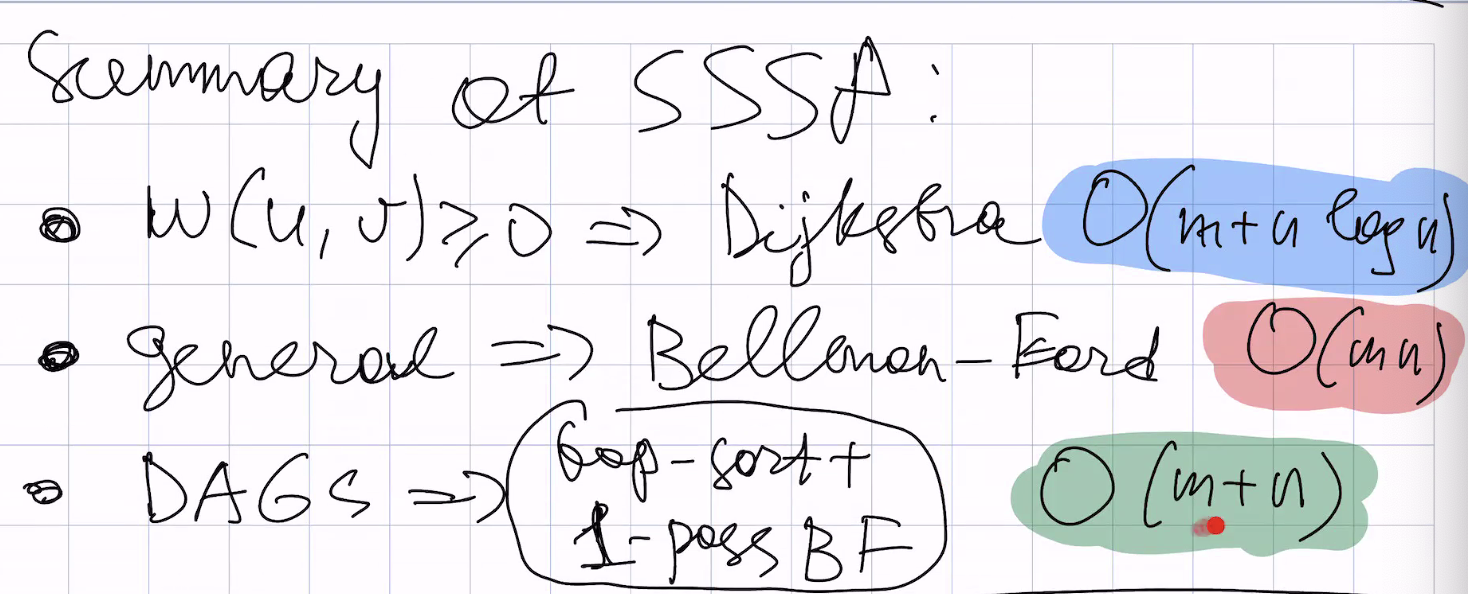 Summary of SSSP:
• w(u,v)≥0 => Dijkstra O(m+n log n)
• general => Bellman-Ford O(mn)
• DAGS => top-sort + O(m+n)
1-pass BF